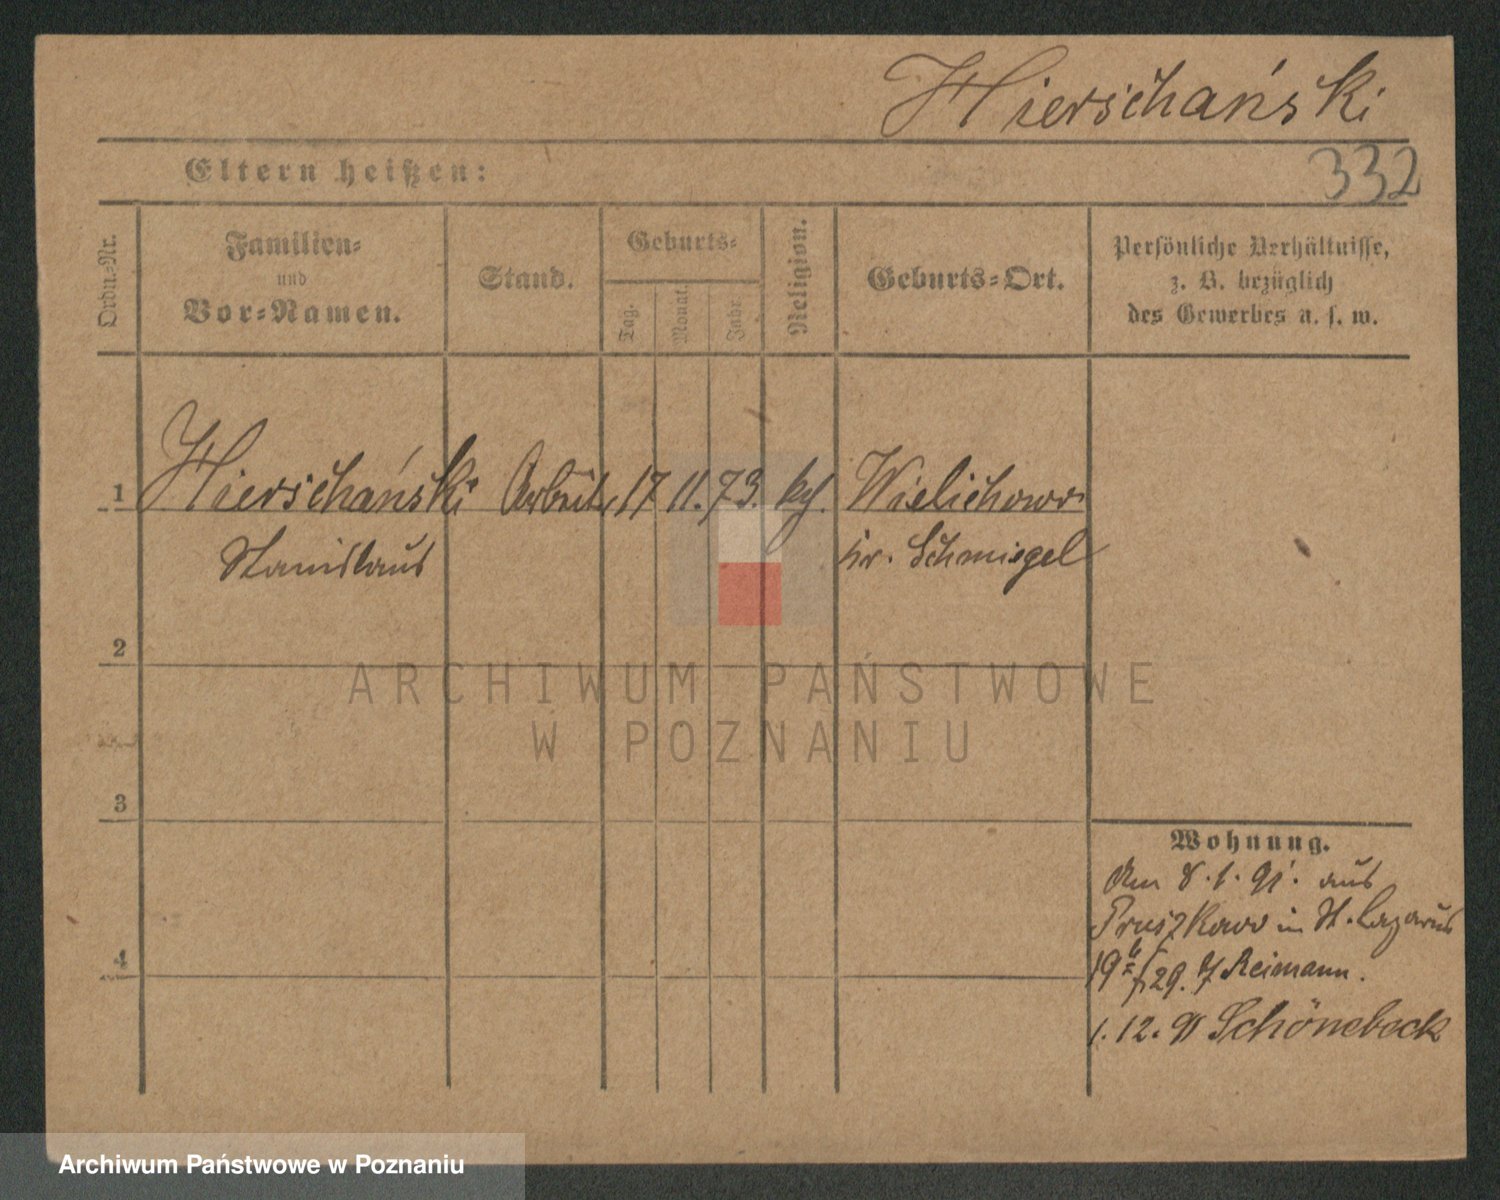 Hierschański
332
Eltern heißen:
Ordn.-Nr.
Familien-
und
Vor-Namen.
Stand.
Geburts-
Tag.
Monat.
Jahr
Religion.
Geburts-Ort.
Persönliche Verhältnisse,
z. B. bezüglich
des Gewerbes u. s. w.
1 Hierschański Arbeiter 17 11. 73. kth. Wielichowo
Stanislaus Kr. Schmiegel
2
ARCHIWUM PAŃSTWOWE
W POZNANIU
3
Wohnung.
Am 8. 1. 91. aus
Pruszkowo in St. Lazarus
4
29. Reimann.
1. 12. Schönebeck
Archiwum Państwowe w Poznaniu